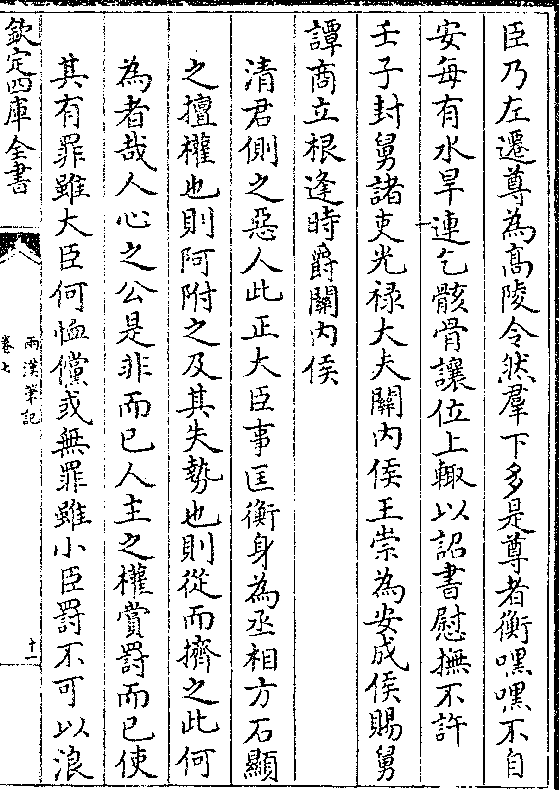 臣乃左遷尊為髙陵令然羣下多是尊者衡嘿嘿不自
安每有水旱連乞骸骨讓位上輙以詔書慰撫不許
壬子封舅諸吏光禄大夫關内侯王崇為安成侯賜舅
譚商立根逢時爵關内侯
清君側之惡人此正大臣事匡衡身為丞相方石顯
之擅權也則阿附之及其失勢也則從而擠之此何
為者哉人心之公是非而已人主之權賞罰而已使
其有罪雖大臣何恤儻或無罪雖小臣罰不可以浪
欽定四庫全書
兩漢筆記
卷七
十一